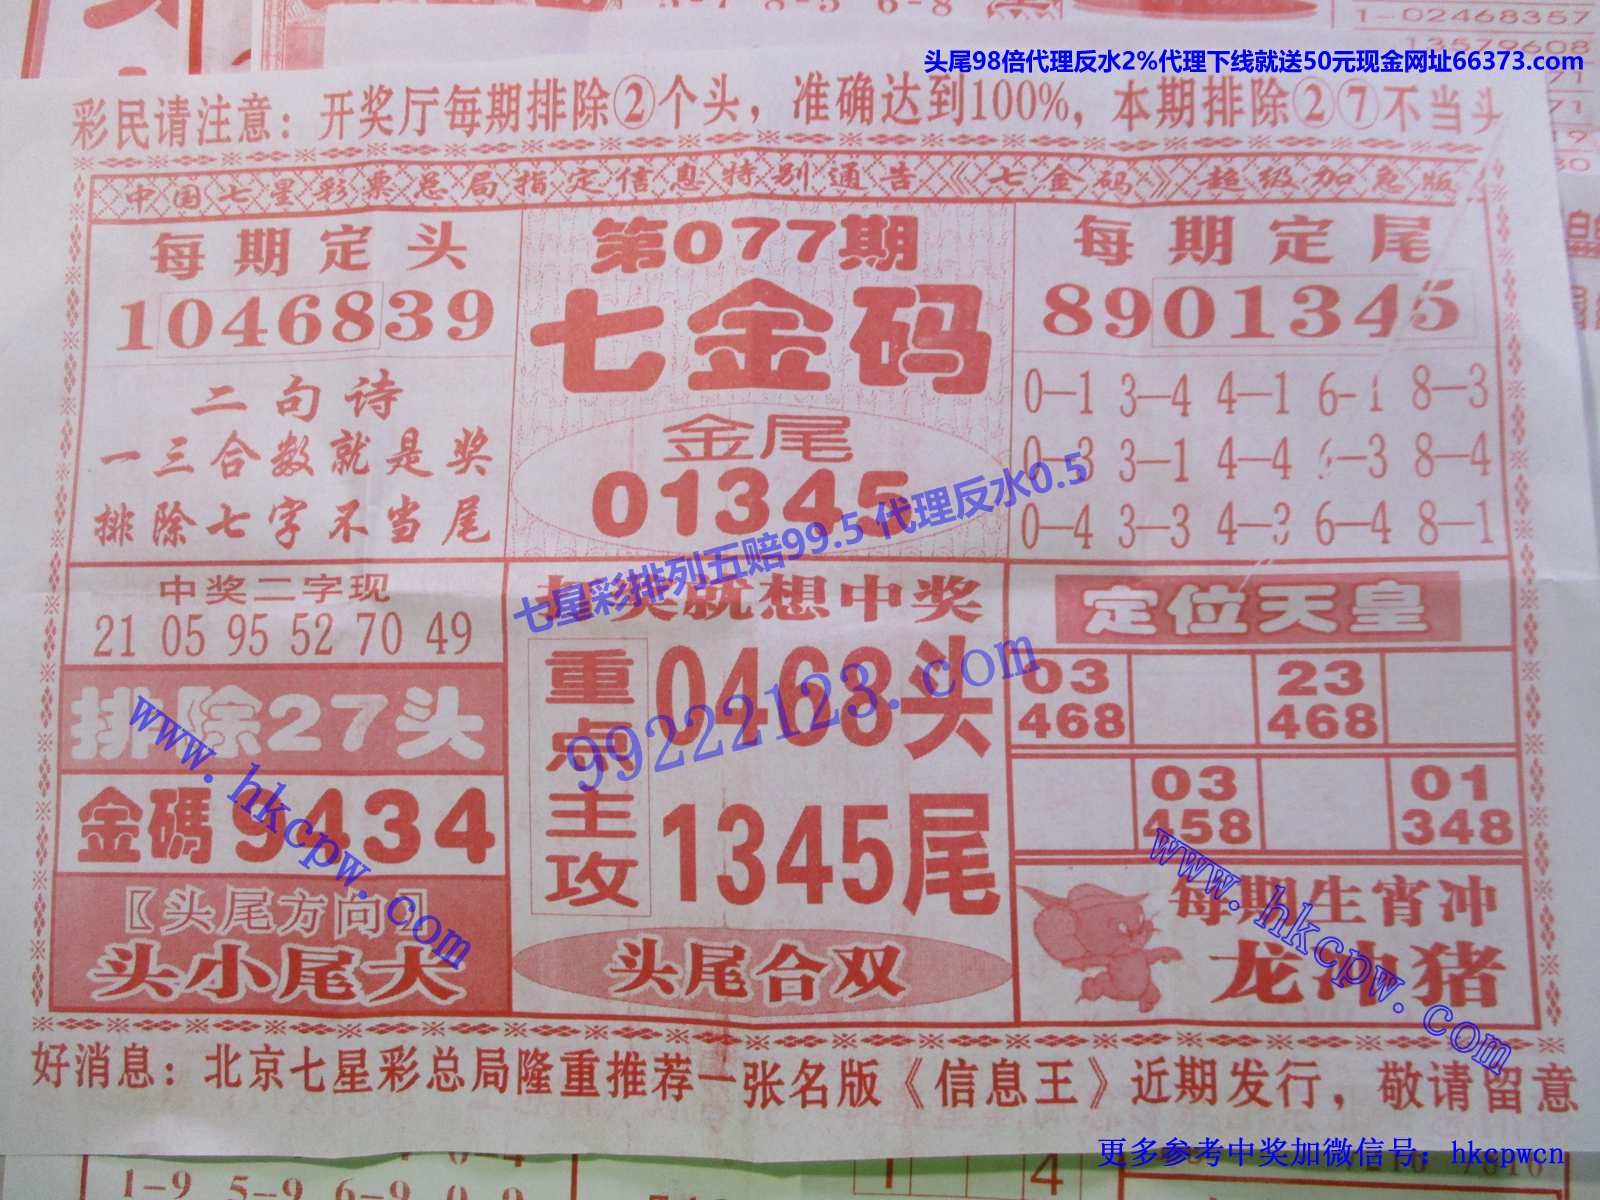 头尾98倍代理反水2%代理下线就送50元现金网址66373.com
1-02468357
13579608
彩民请注意：开奖厅每期排除②个头，准确达到100%，本期排除②⑦不当头
中国七星彩票总局指定信息特别通告《七金码》超级加急版
每期定头
1046839
二句诗
一三合数就是奖
排除七字不当尾
第077期
七金码
金尾
01345
每期定尾
8901345
0—1 3—4 4—1 6-1 8—3
0-3 3—1 4—4 6—3 8—4
0—4 3—3 4—3 6—4 8—1
七星彩排列五赔99.5 代理反水0.5
中奖二字现
21 05 95 52 70 49
排除27头
金碼9434
〖头尾方向〗
头小尾大
奖就想中奖
重点主攻
0468头
1345尾
头尾合双
99222123.com
定位天皇
03 23
468 468
03 01
458 348
每期生宵冲
龙冲猪
www.hkcpw.com
www.hkcpw.com
好消息：北京七星彩总局隆重推荐一张名版《信息王》近期发行，敬请留意
更多参考中奖加微信号：hkcpwcn
1-9 5-9 6-9 0-9
1 4